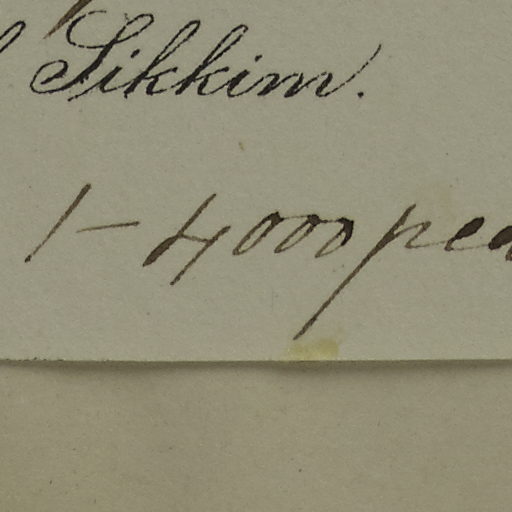 Sikkim.
1-4000 ped